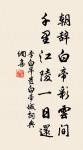 朝辭白帝彩雲間
千里江陵一日還
李白早發白帝城詞典
網集